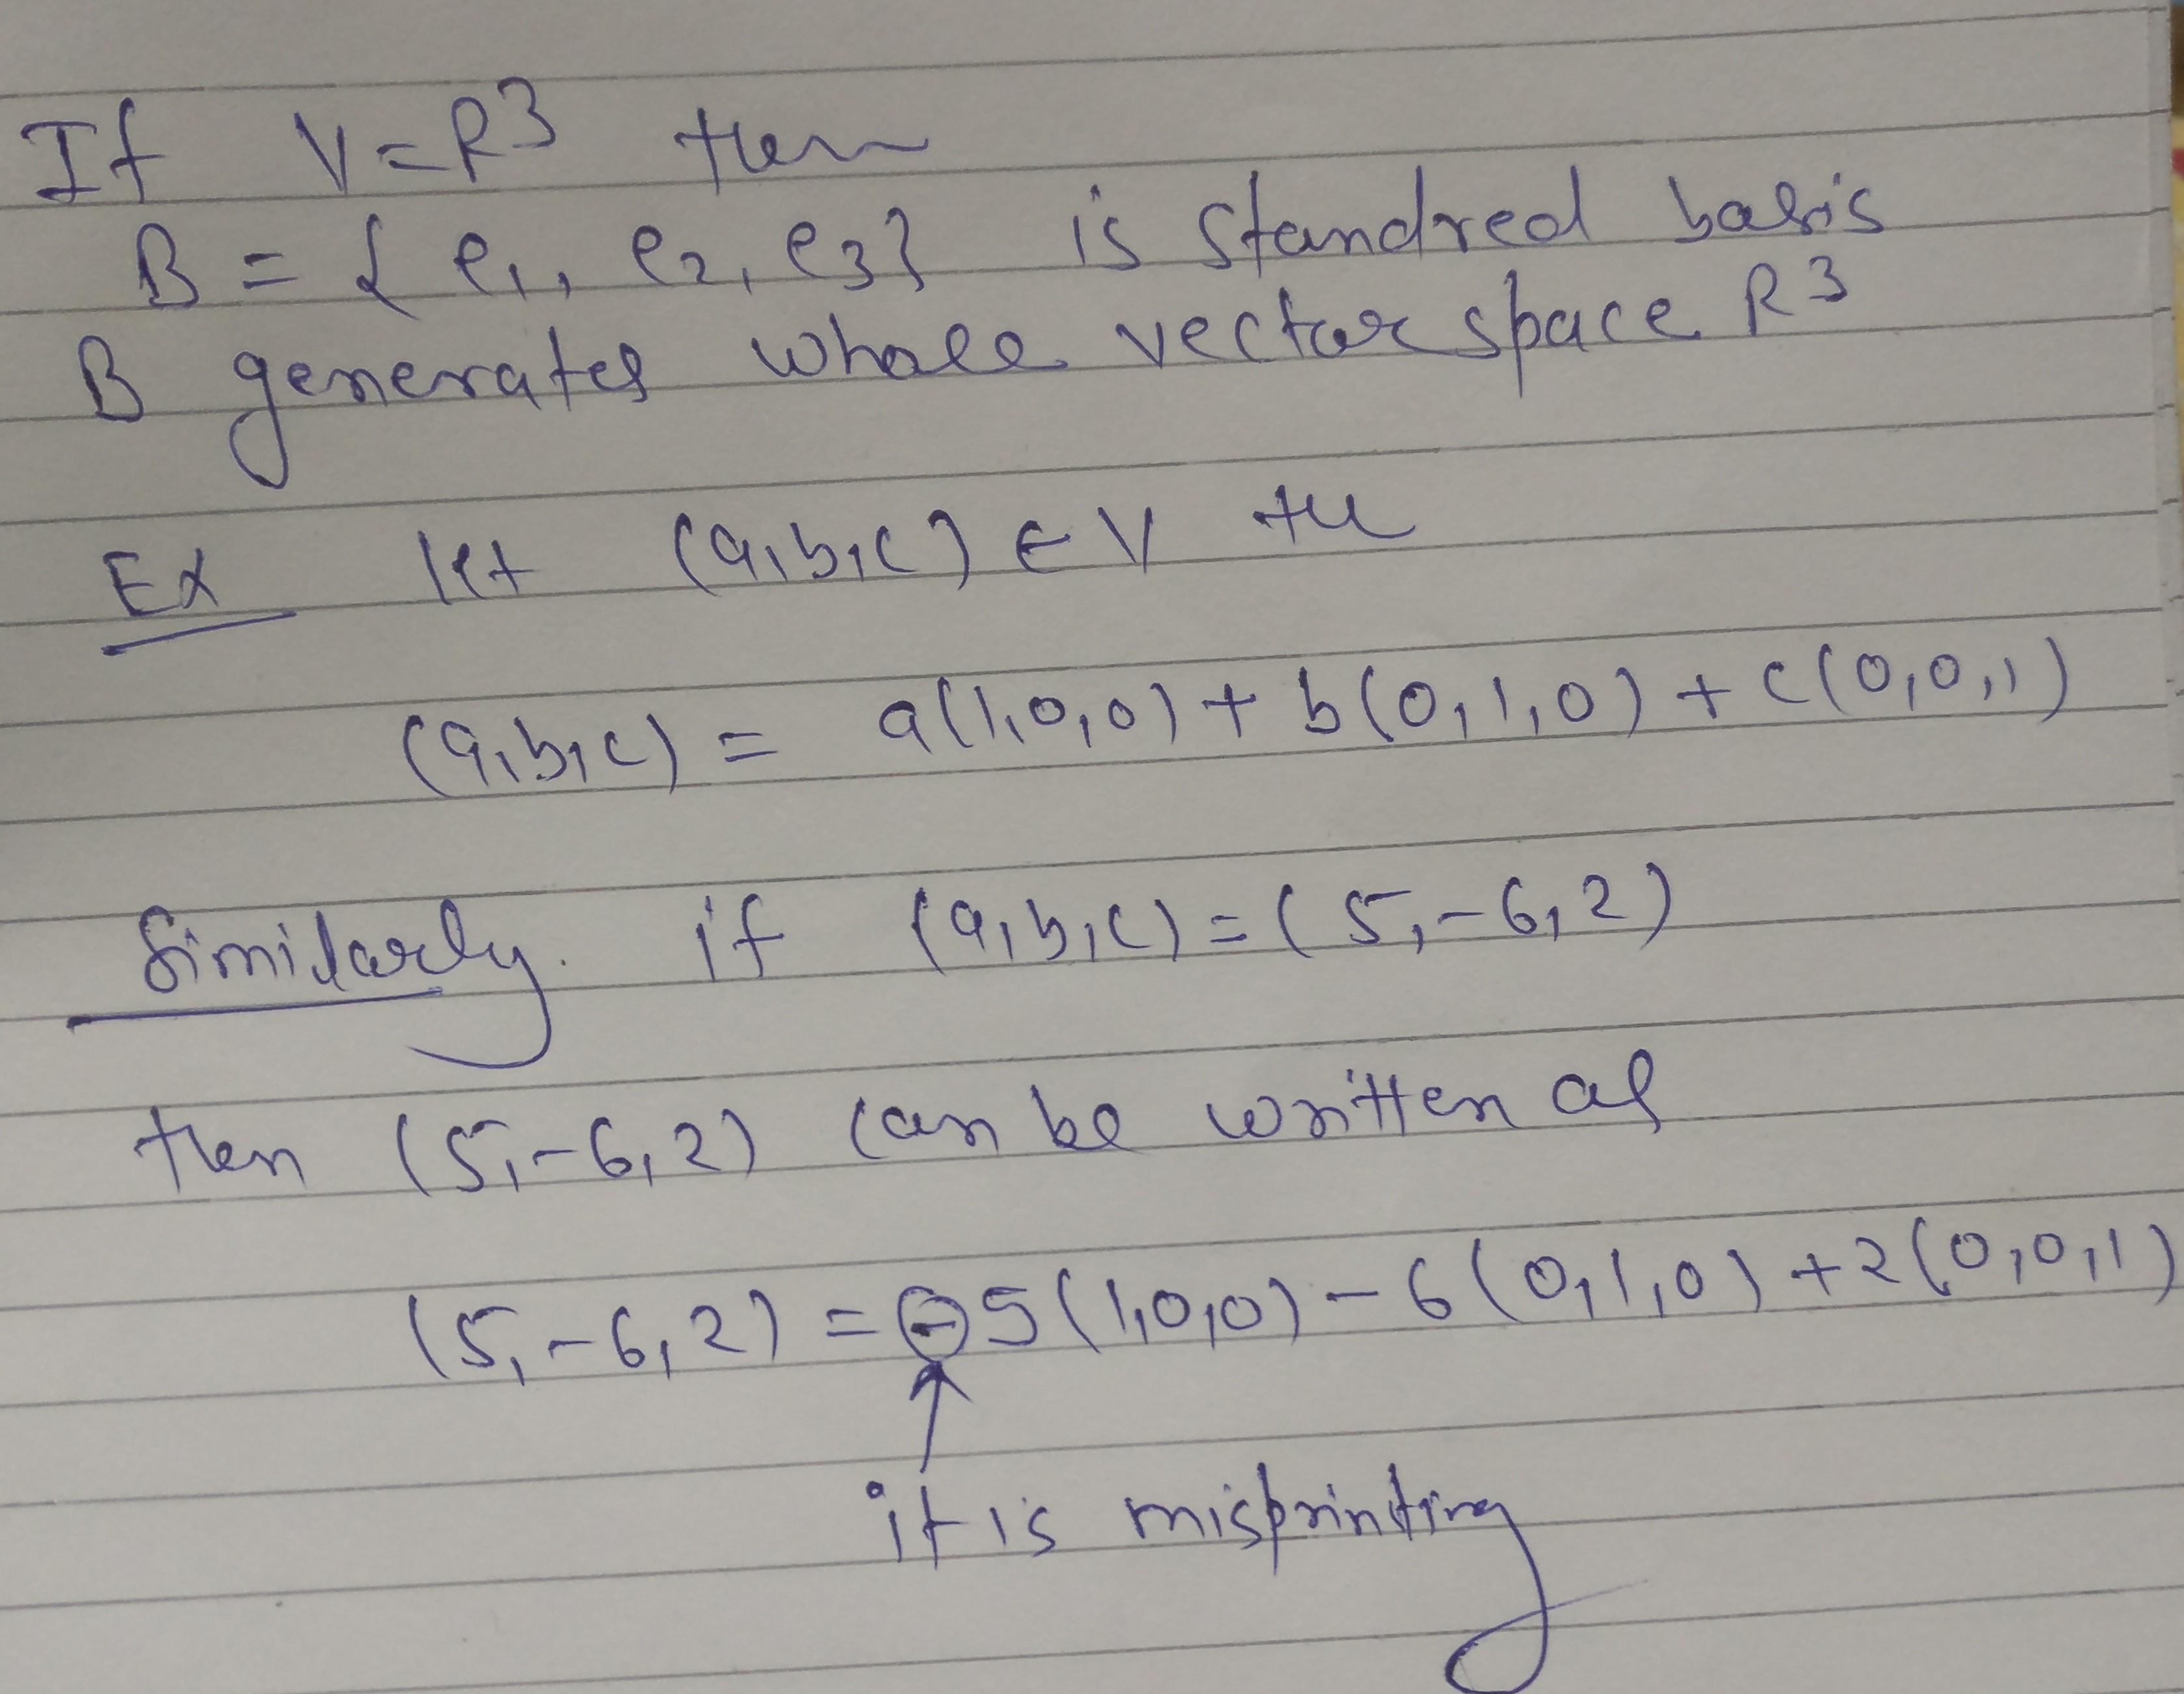 If V=R³ then
B = { e₁, e₂, e₃} is standred basis
B generates whole vector space R³
Ex let (a,b,c) ∈ V the
(a,b,c) = a(1,0,0) + b(0,1,0) + c(0,0,1)
Similarly. if (a,b,c) = (5,-6,2)
then (5,-6,2) can be written as
(5,-6,2) = -5(1,0,0) - 6(0,1,0) +2(0,0,1)
it is misprinting